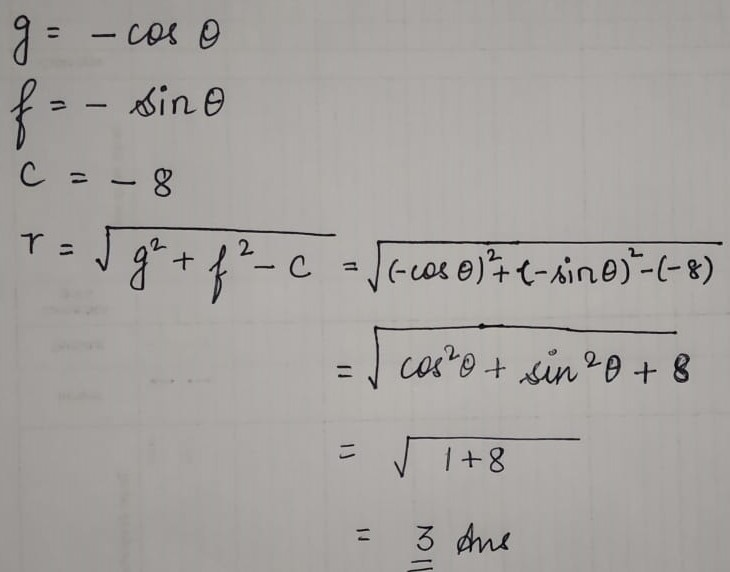 g = - cos θ
f = - sin θ
c = - 8
r = √(g² + f² - c) = √((-cos θ)² + (-sin θ)² - (-8))
= √(cos²θ + sin²θ + 8)
= √(1 + 8)
= 3 Ans